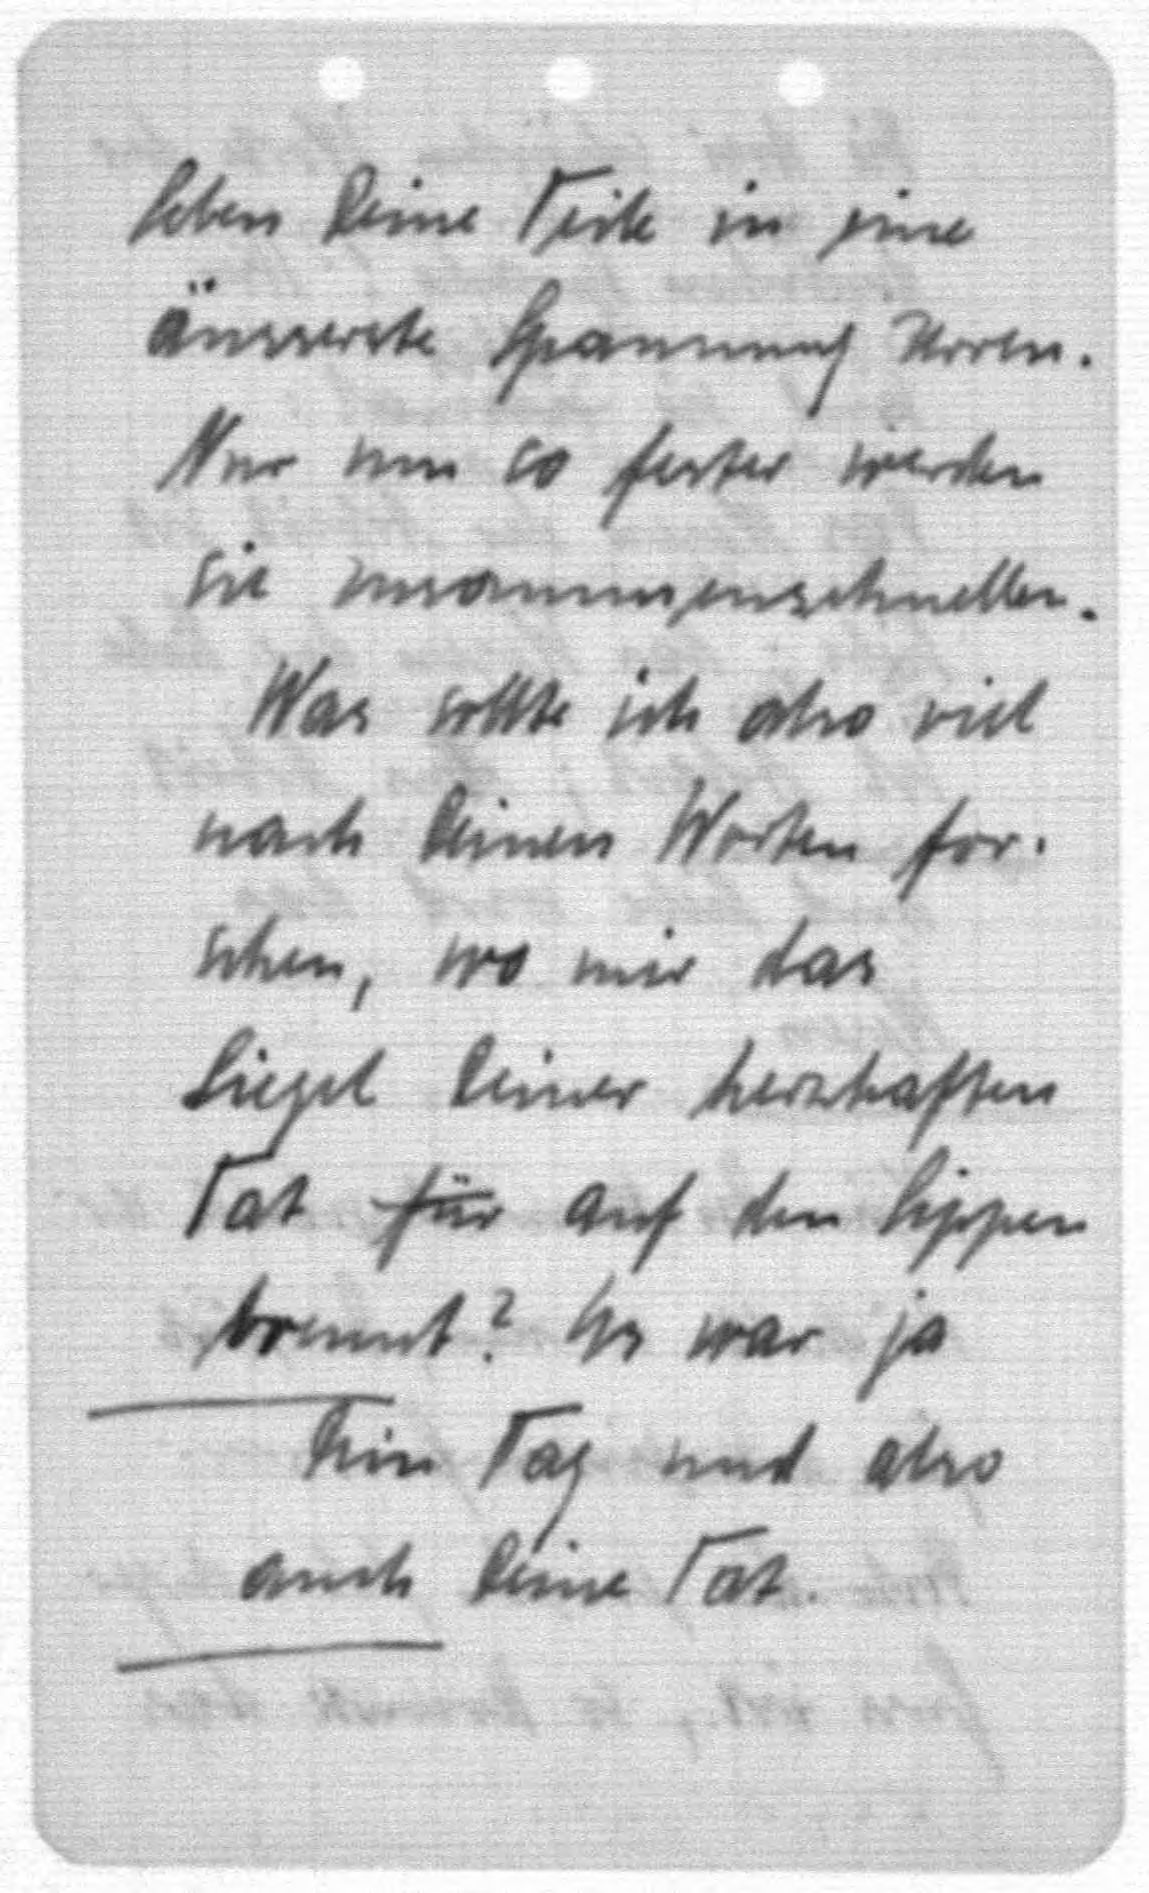 leben Deine Teile in eine
äusserste Spannung zerren.
Nur um so fester werden
sie zusammenschnellen.
Was sollte ich also viel
nach Deinen Worten for-
schen, wo mir das
Siegel Deiner herzhaften
Tat für auf den Lippen
brennt? Es war ja
Dein Tag und also
auch Deine Tat.